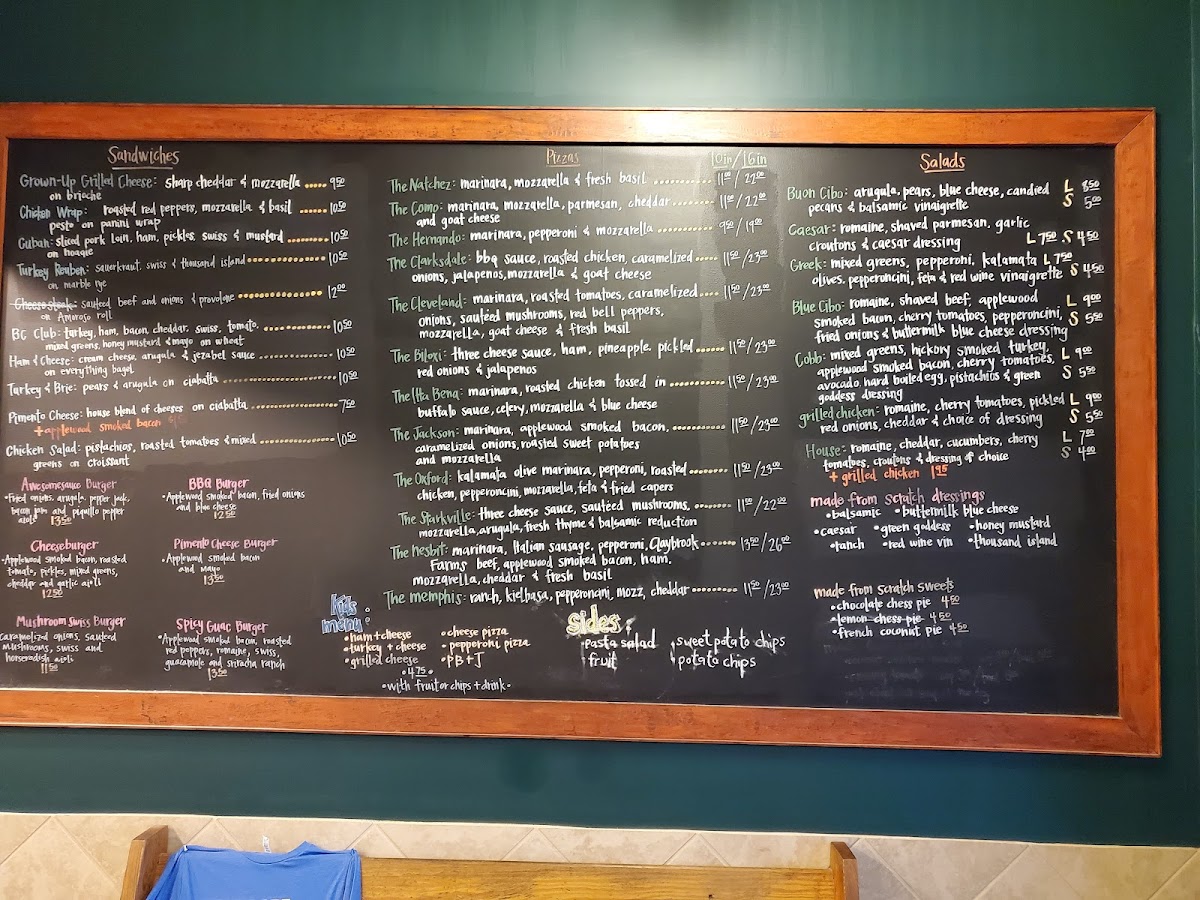 Sandwiches
Grown-Up Grilled Cheese: sharp cheddar & mozzarella ..... 9.50
on brioche
Chicken Wrap: roasted red peppers, mozzarella & basil ..... 10.50
pesto on panini wrap
Cuban: sliced pork loin, ham, pickles, swiss & mustard ....... 10.50
on hoagie
Turkey Reuben: sauerkraut, swiss & thousand island ........ 10.50
on marble rye
Cheese steak: sauteed beef and onions & provolone ........ 12.00
on Amoroso roll
BC Club: turkey, ham, bacon, cheddar, swiss, tomato, ........ 10.50
mixed greens, honey mustard & mayo on wheat
Ham & Cheese: cream cheese, arugula & jezabel sauce ........ 10.50
on everything bagel
Turkey & Brie: pears & arugula on ciabatta ........ 10.50
Pimento Cheese: house blend of cheeses on ciabatta ........ 7.50
+ applewood smoked bacon
Chicken Salad: pistachios, roasted tomatoes & mixed ........ 10.50
greens on croissant
Awesomesauce Burger
•Fried onions, arugula, pepper jack,
bacon jam and piquillo pepper
aioli 13.50
BBQ Burger
•Applewood smoked bacon, fried onions
and blue cheese
12.50
Cheeseburger
•Applewood smoked bacon, roasted
tomato, pickles, mixed greens,
cheddar and garlic aioli
12.50
Pimento Cheese Burger
•Applewood smoked bacon
and mayo
13.50
Mushroom Swiss Burger
caramelized onions, sauteed
mushrooms, swiss and
horseradish aioli
11.50
Spicy Guac Burger
•Applewood smoked bacon, roasted
red peppers, romaine, swiss,
guacamole and sriracha ranch
13.50
Pizzas 10in/16in
The Natchez: marinara, mozzarella & fresh basil ........ 11.00/22.00
The Como: marinara, mozzarella, parmesan, cheddar ........ 11.00/22.00
and goat cheese
The Hernando: marinara, pepperoni & mozzarella ........ 9.50/19.00
The Clarksdale: bbq sauce, roasted chicken, caramelized .... 11.50/23.00
onions, jalapenos, mozzarella & goat cheese
The Cleveland: marinara, roasted tomatoes, caramelized .... 11.50/23.00
onions, sautéed mushrooms, red bell peppers,
mozzarella, goat cheese & fresh basil
The Biloxi: three cheese sauce, ham, pineapple, pickled ..... 11.50/23.00
red onions & jalapenos
The Itta Bena: marinara, roasted chicken tossed in ........ 11.50/23.00
buffalo sauce, celery, mozzarella & blue cheese
The Jackson: marinara, applewood smoked bacon, ........ 11.50/23.00
caramelized onions, roasted sweet potatoes
and mozzarella
The Oxford: kalamata olive marinara, pepperoni, roasted ..... 11.50/23.00
chicken, pepperoncini, mozzarella, feta & fried capers
The Starkville: three cheese sauce, sauteed mushrooms, ...... 11.00/22.00
mozzarella, arugula, fresh thyme & balsamic reduction
The Nesbit: marinara, Italian sausage, pepperoni, Claybrook ..... 13.50/26.00
Farms beef, applewood smoked bacon, ham,
mozzarella, cheddar & fresh basil
The memphis: ranch, kielbasa, pepperoncini, mozz, cheddar ........ 11.50/23.00
kids menu:
•ham + cheese
•turkey + cheese
•grilled cheese
•cheese pizza
•pepperoni pizza
•PB+J
•4.75•
•with fruit or chips + drink•
sides:
•pasta salad
•fruit
•sweet potato chips
•potato chips
Salads
Buon Cibo: arugula, pears, blue cheese, candied L 8.50
pecans & balsamic vinaigrette S 5.00
Caesar: romaine, shaved parmesan, garlic
croutons & caesar dressing L 7.50 S 4.50
Greek: mixed greens, pepperoni, kalamata L 7.50
olives, pepperoncini, feta & red wine vinaigrette S 4.50
Blue Cibo: romaine, shaved beef, applewood L 9.00
smoked bacon, cherry tomatoes, pepperoncini, S 5.50
fried onions & buttermilk blue cheese dressing
Cobb: mixed greens, hickory smoked turkey,
applewood smoked bacon, cherry tomatoes, L 9.00
avocado, hard boiled egg, pistachios & green S 5.50
goddess dressing
grilled chicken: romaine, cherry tomatoes, pickled L 9.00
red onions, cheddar & choice of dressing S 5.50
House: romaine, cheddar, cucumbers, cherry L 7.00
tomatoes, croutons & dressing of choice S 4.00
+ grilled chicken 1.95
made from scratch dressings
•balsamic •buttermilk blue cheese
•caesar •green goddess •honey mustard
•ranch •red wine vin •thousand island
made from scratch sweets
•chocolate chess pie 4.50
•lemon chess pie 4.50
•french coconut pie 4.50